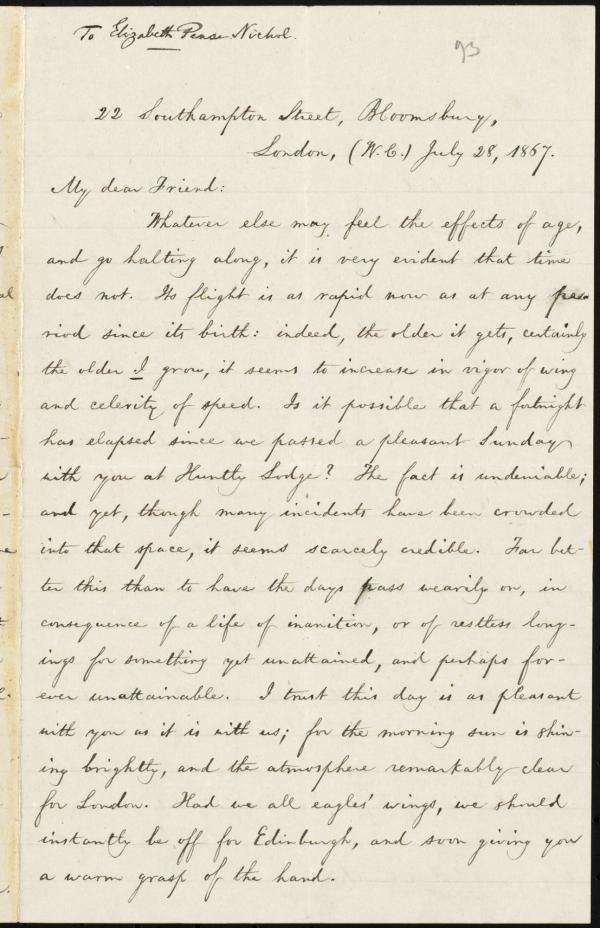 To Elizabeth Pease Nichol.
93
22 Southampton Street, Bloomsbury,
London, (W.C.) July 28, 1867.
My dear Friend:
Whatever else may feel the effects of age,
and go halting along, it is very evident that time
does not. Its flight is as rapid now as at any pe-
riod since its birth: indeed, the older it gets, certainly
the older I grow, it seems to increase in vigor of wing
and celerity of speed. Is it possible that a fortnight
has elapsed since we passed a pleasant Sunday
with you at Huntly Lodge? The fact is undeniable;
and yet, though many incidents have been crowded
into that space, it seems scarcely credible. Far bet-
ter this than to have the days pass wearily on, in
consequence of a life of inanition, or of restless long-
ings for something yet unattained, and perhaps for-
ever unattainable. I trust this day is as pleasant
with you as it is with us; for the morning sun is shin-
ing brightly, and the atmosphere remarkably clear
for London. Had we all eagles' wings, we should
instantly be off for Edinburgh, and soon giving you
a warm grasp of the hand.